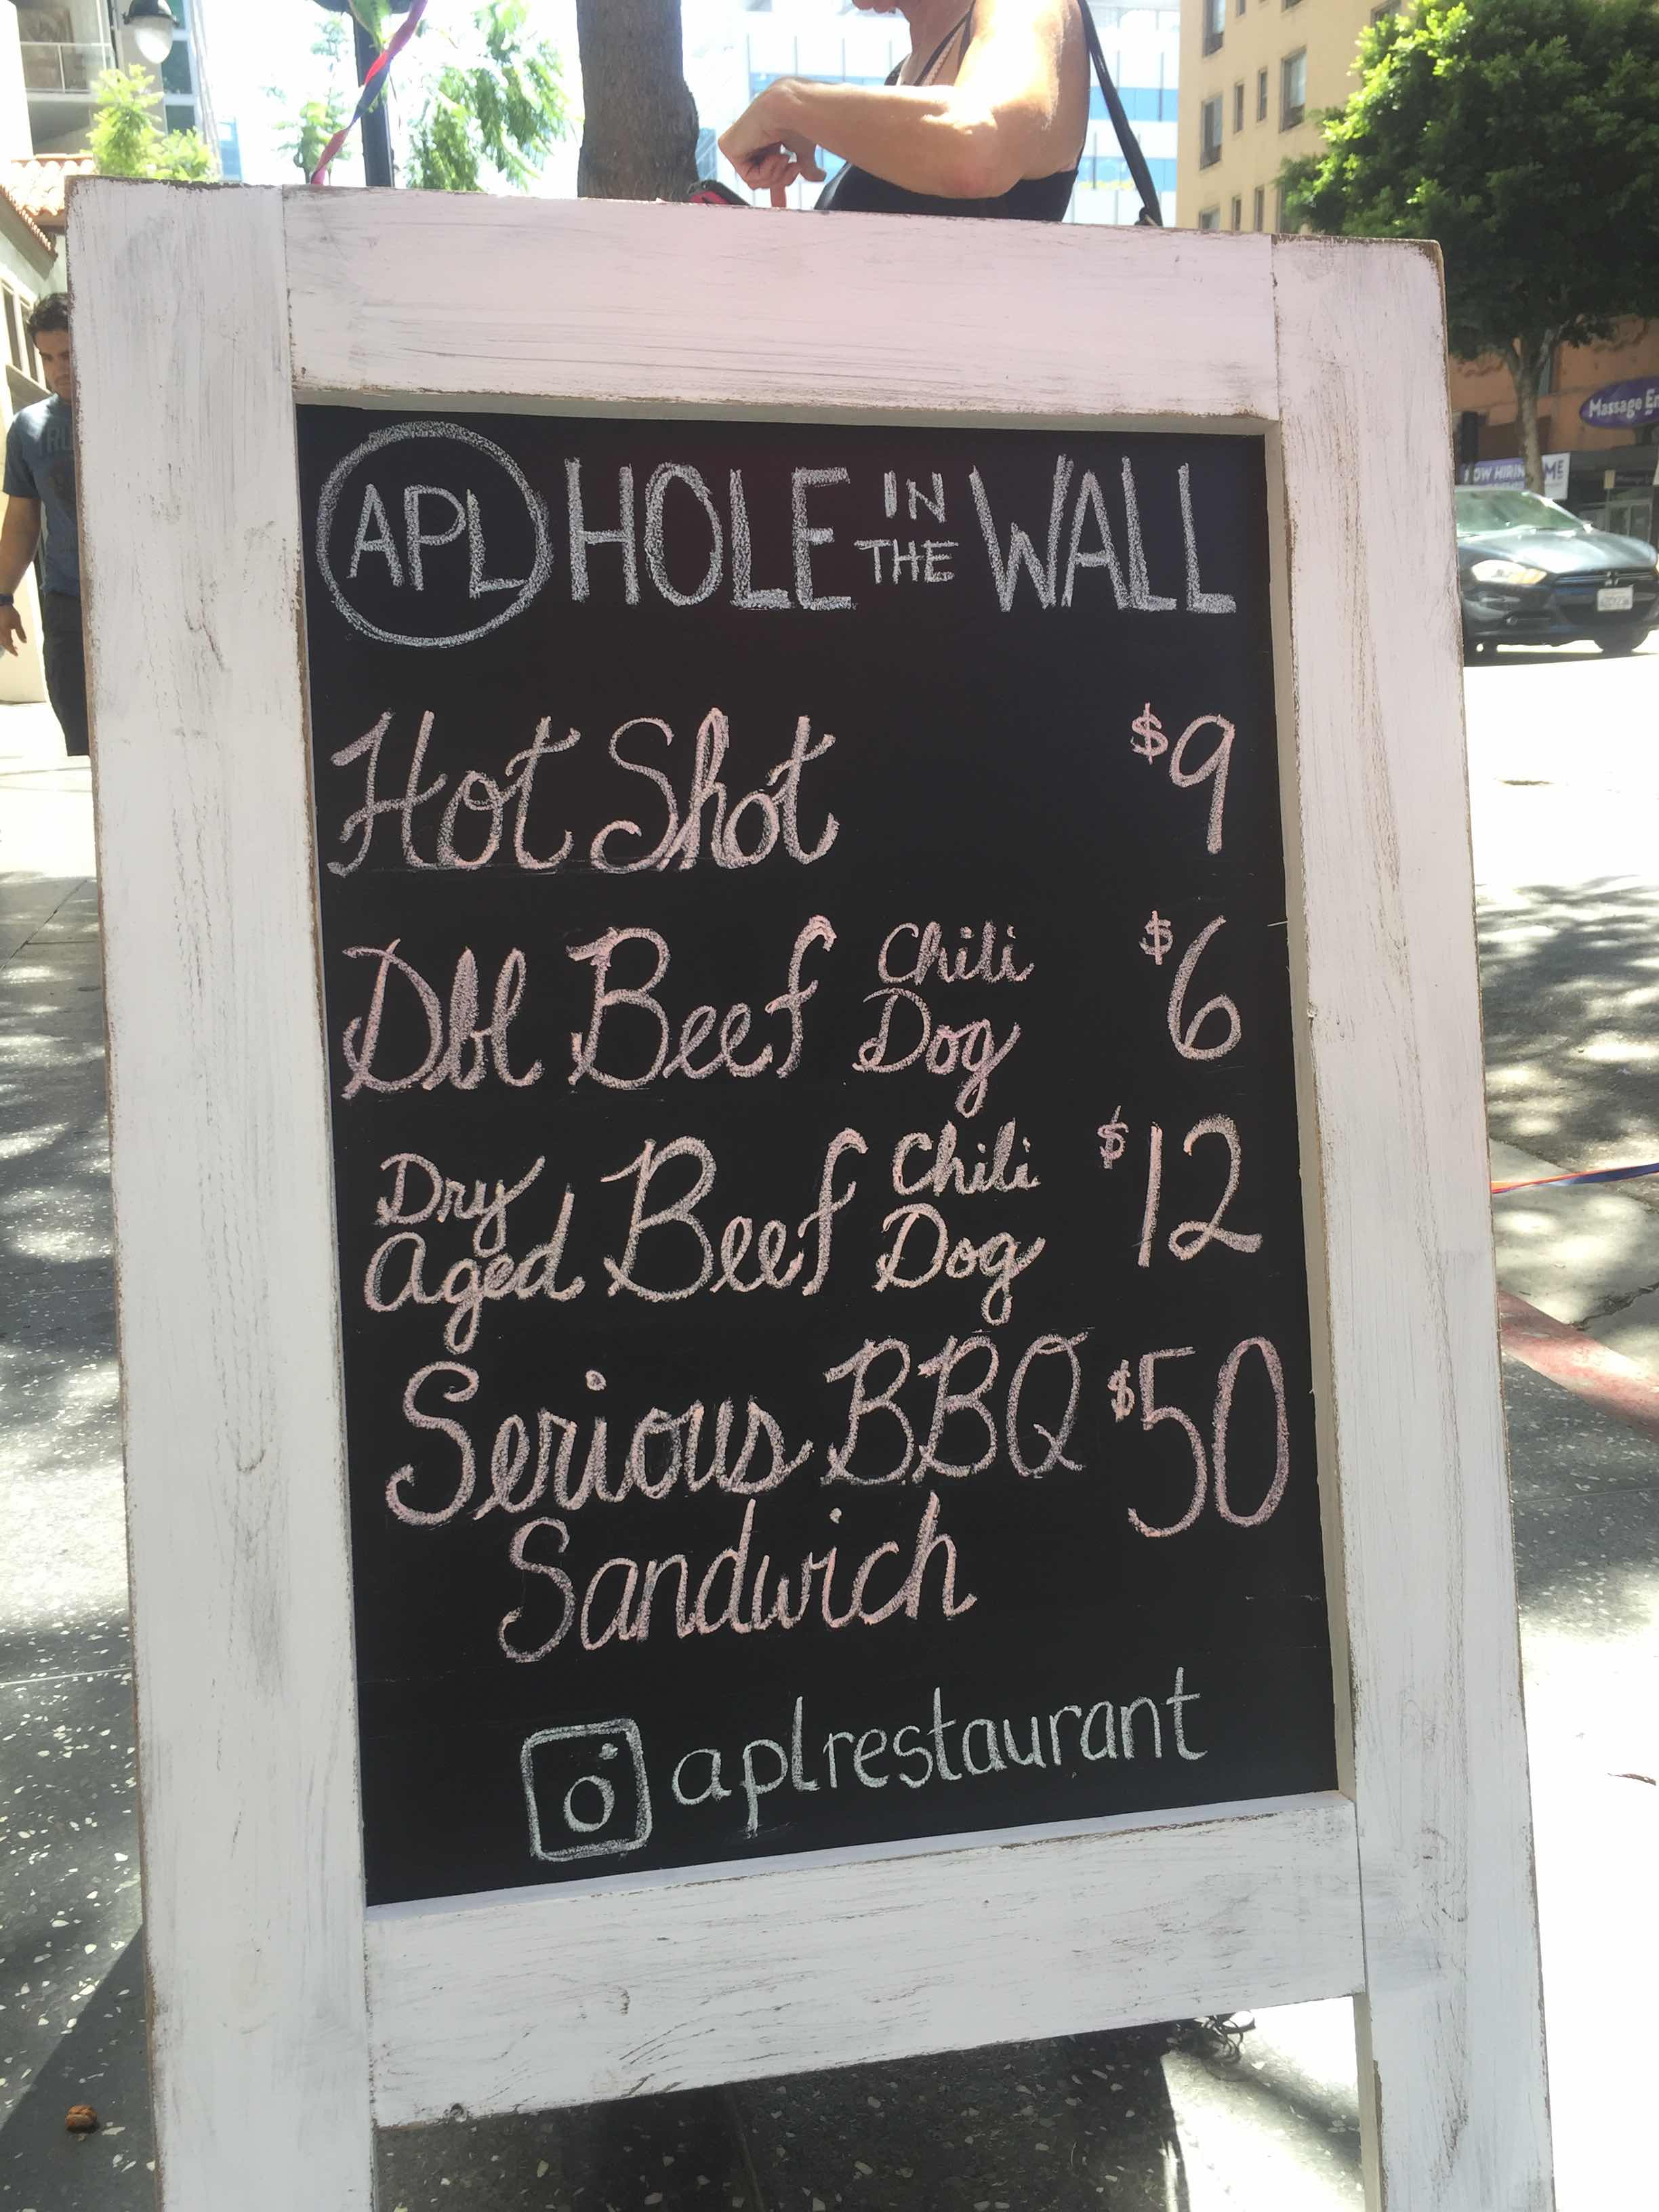 APL HOLE IN THE WALL
Hot Shot $9
Dbl Beef Chili Dog $6
Dry Aged Beef Chili Dog $12
Serious BBQ $50
Sandwich
aplrestaurant
Massage